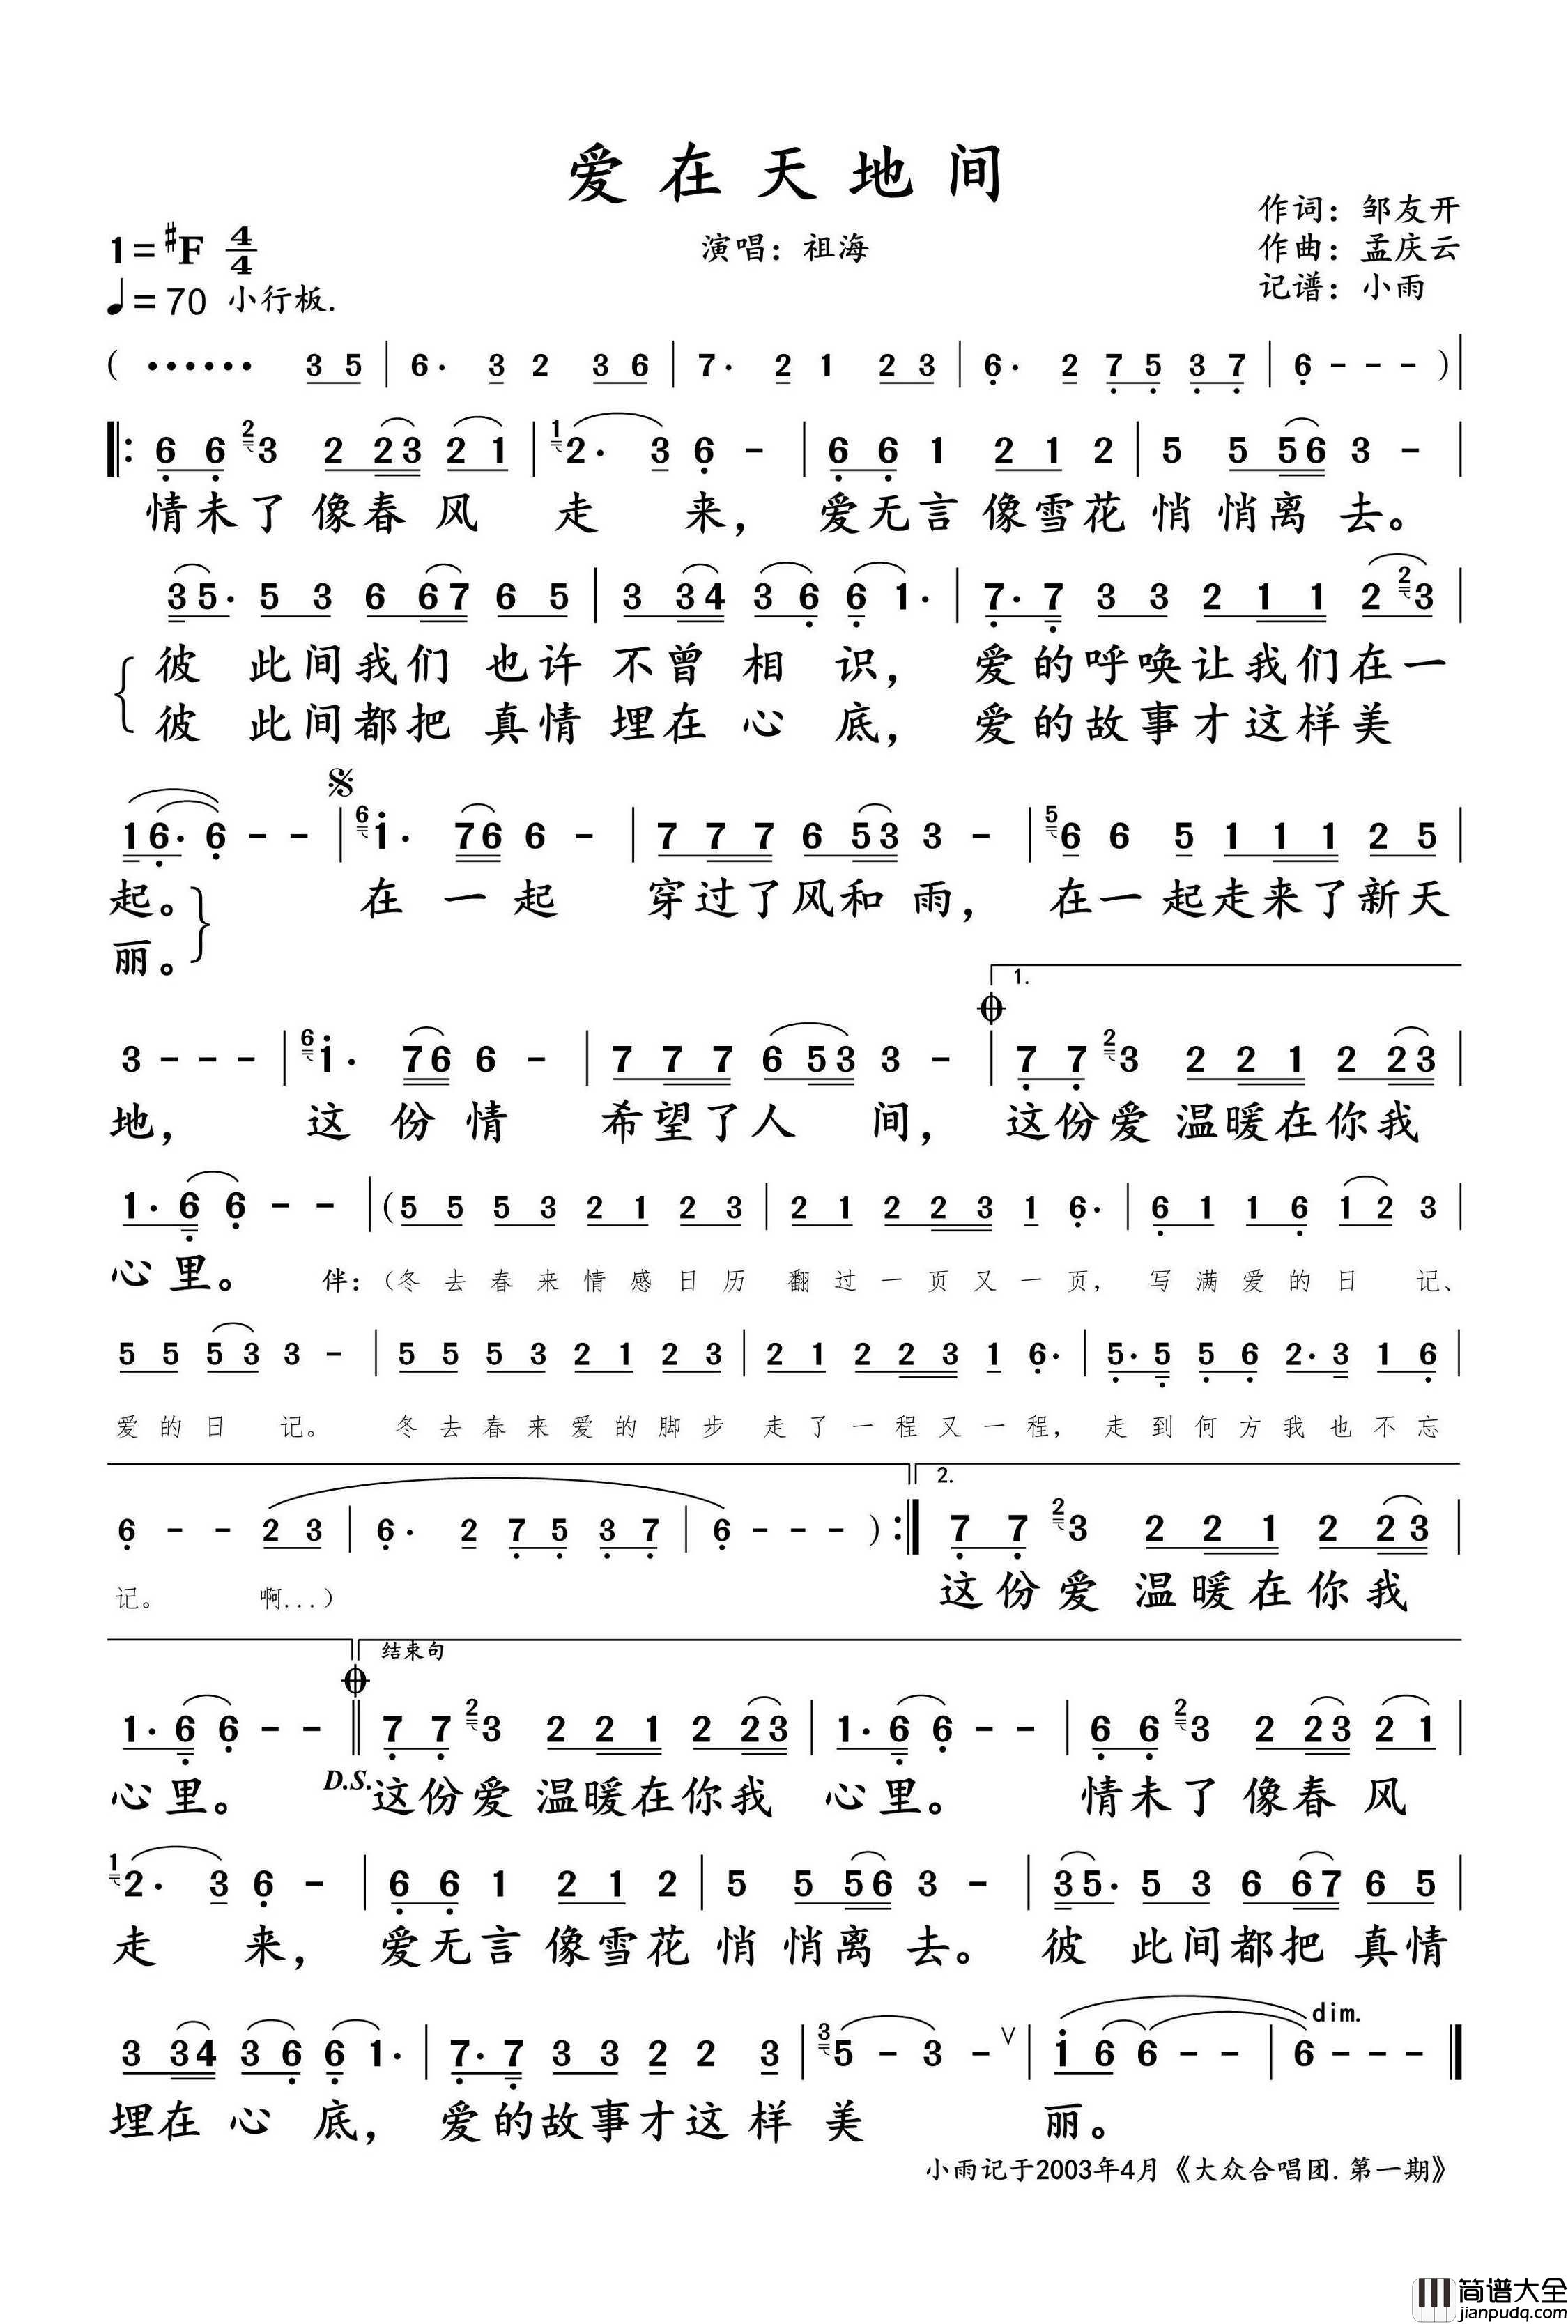 爱在天地间
作词：邹友开
1=#F 4/4
演唱：祖海
作曲：孟庆云
♩=70 小行板.
记谱：小雨
( •••••• 3 5 | 6. 3 2 3 6 | 7. 2 1 2 3 | 6. 2 7 5 3 7 | 6 - - - ) |
‖: 6 6 2 3 2 2 3 2 1 | 1 2. 3 6 - | 6 6 1 2 1 2 | 5 5 5 6 3 - |
情未了 像春风 走 来， 爱无言 像雪花 悄 悄离 去。
3 5. 5 3 6 6 7 6 5 | 3 3 4 3 6 6 1. | 7. 7 3 3 2 1 1 2 2 3 |
彼 此间我们 也许 不曾 相 识， 爱的呼唤让我们在一
彼 此间都把 真情 埋在 心 底， 爱的故事才这样美
1 6. 6 - - | 6 i. 7 6 6 - | 7 7 7 6 5 3 3 - | 5 6 6 5 1 1 1 2 5 |
起。 在 一 起 穿过了风和 雨， 在一 起走来了新天
丽。
1.
3 - - - | 6 i. 7 6 6 - | 7 7 7 6 5 3 3 - | 7 7 2 3 2 2 1 2 2 3 |
地， 这 份 情 希望了人 间， 这份爱 温暖在你我
1. 6 6 - - | ( 5 5 5 3 2 1 2 3 | 2 1 2 2 3 1 6. | 6 1 1 6 1 2 3 |
心里。 伴：（冬去春来情感日历 翻过一页又一页， 写满爱的日 记、
5 5 5 3 3 - | 5 5 5 3 2 1 2 3 | 2 1 2 2 3 1 6. | 5. 5 5 6 2. 3 1 6 |
爱的日 记。 冬去春来爱的脚步 走了一程又一程， 走到何方我也不忘
2.
6 - - 2 3 | 6. 2 7 5 3 7 | 6 - - - ) :‖ 7 7 2 3 2 2 1 2 2 3 |
记。 啊...） 这份爱 温暖在你我
结束句
1. 6 6 - - ‖ 7 7 2 3 2 2 1 2 2 3 | 1. 6 6 - - | 6 6 2 3 2 2 3 2 1 |
心里。 D.S. 这份爱 温暖在你我 心里。 情未了 像春风
1 2. 3 6 - | 6 6 1 2 1 2 | 5 5 5 6 3 - | 3 5. 5 3 6 6 7 6 5 |
走 来， 爱无言 像雪花 悄 悄离 去。 彼 此间都把 真情
dim.
3 3 4 3 6 6 1. | 7. 7 3 3 2 2 3 | 3 5 - 3 - ∨ | i 6 6 - - | 6 - - - ‖
埋在 心 底， 爱的故事才这 样 美 丽。
小雨记于2003年4月《大众合唱团.第一期》
简谱大全
jianpudq.com